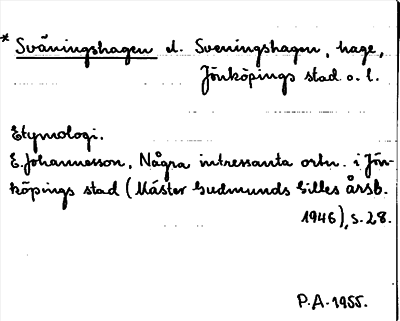 * Svåningshagen el. Sveningshagen, hage,
Jönköpings stad o. l.
Etymologi.
E. Johannesson, Några intressanta ortn. i Jön-
köpings stad (Mäster Gudmunds Gilles årsb.
1946), s. 28.
P.A. 1955.